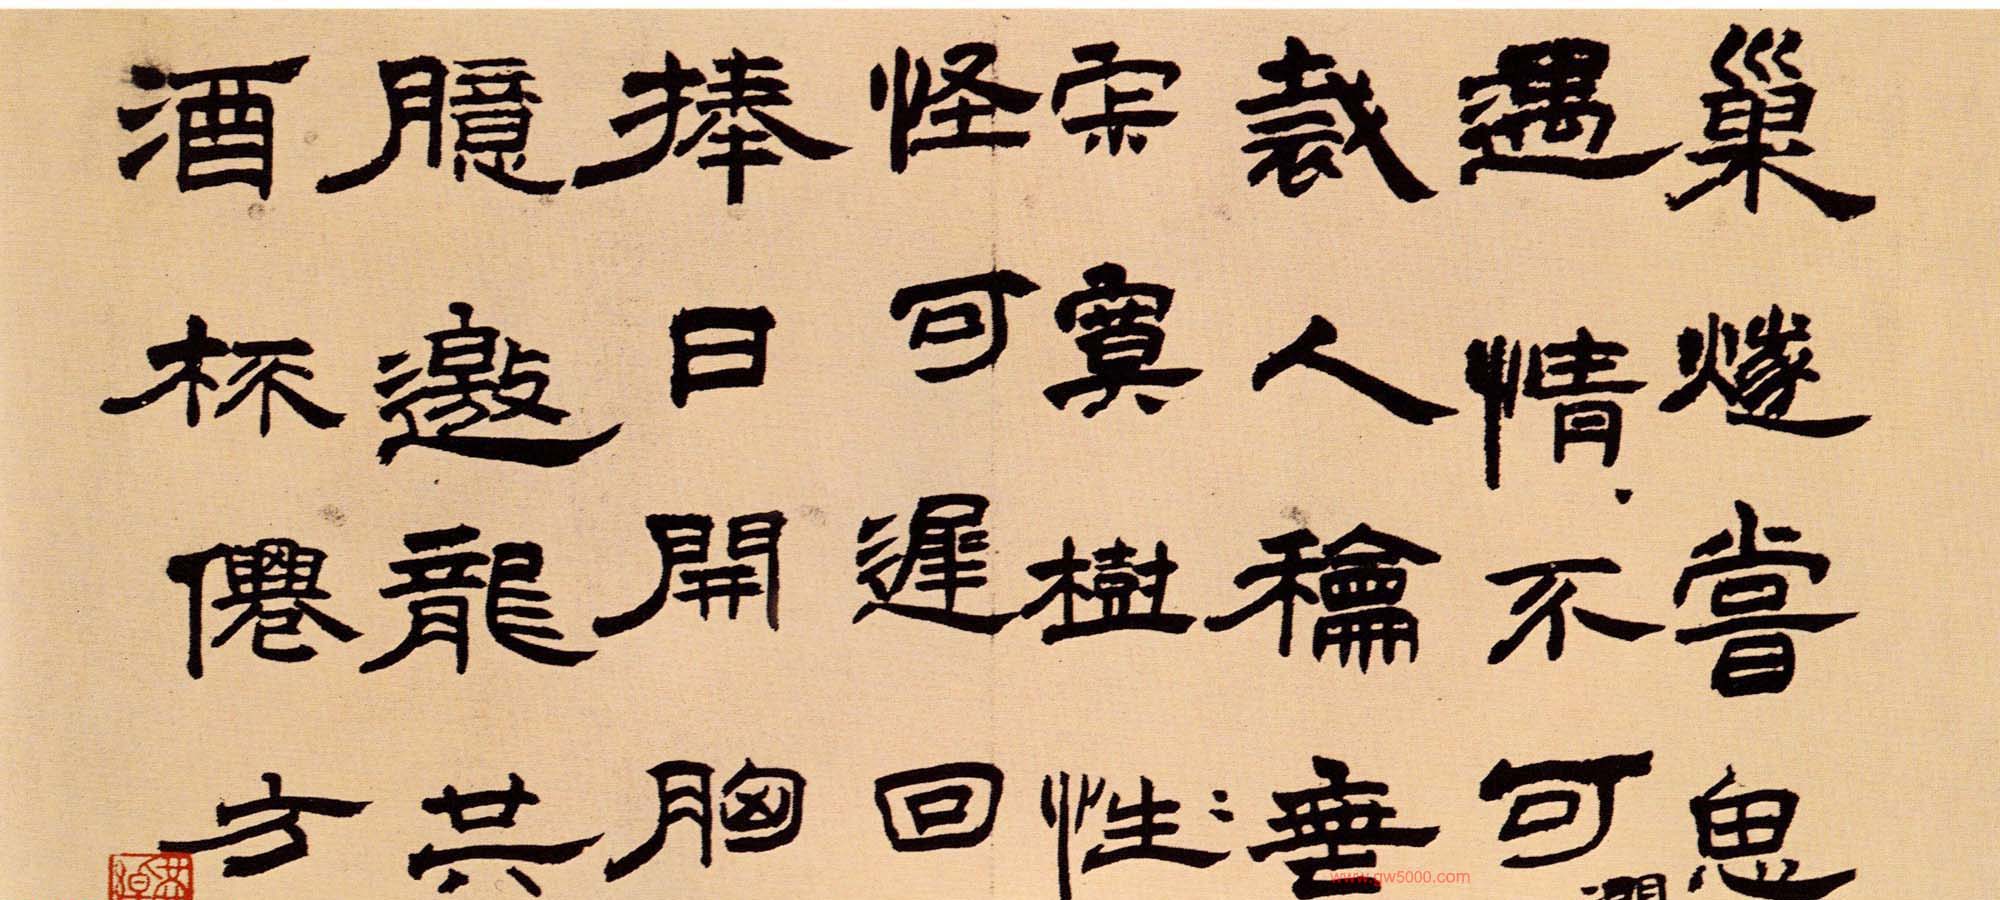 巢燧嘗思
遇情不可
裁人龢垂
實樹性
怪可遲回
捧日開胸
臆邀龍共
酒杯僊方
www.gw5000.com